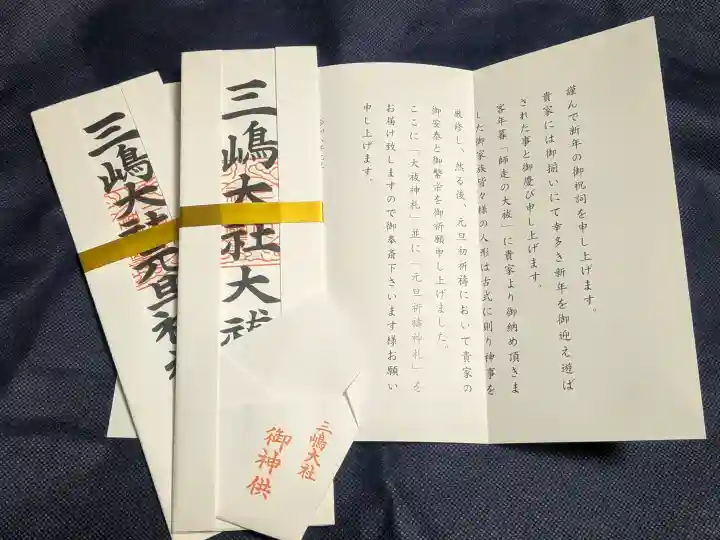 謹んで新年の御祝詞を申し上げます。
貴家には御揃いにて幸多き新年を御迎え遊ば
された事と御慶び申し上げます。
客年暮「師走の大祓」に貴家より御納め頂きま
した御家族皆々様の人形は古式に則り神事を
厳修し、然る後、元旦初祈祷において貴家の
御安泰と御繁栄を御祈願申し上げました。
ここに「大祓神札」並に「元旦祈祷神札」を
お届け致しますので御奉斎下さいます様お願い
申し上げます。
三嶋大社大祓
三嶋大社元旦祈
三嶋大社
御神供